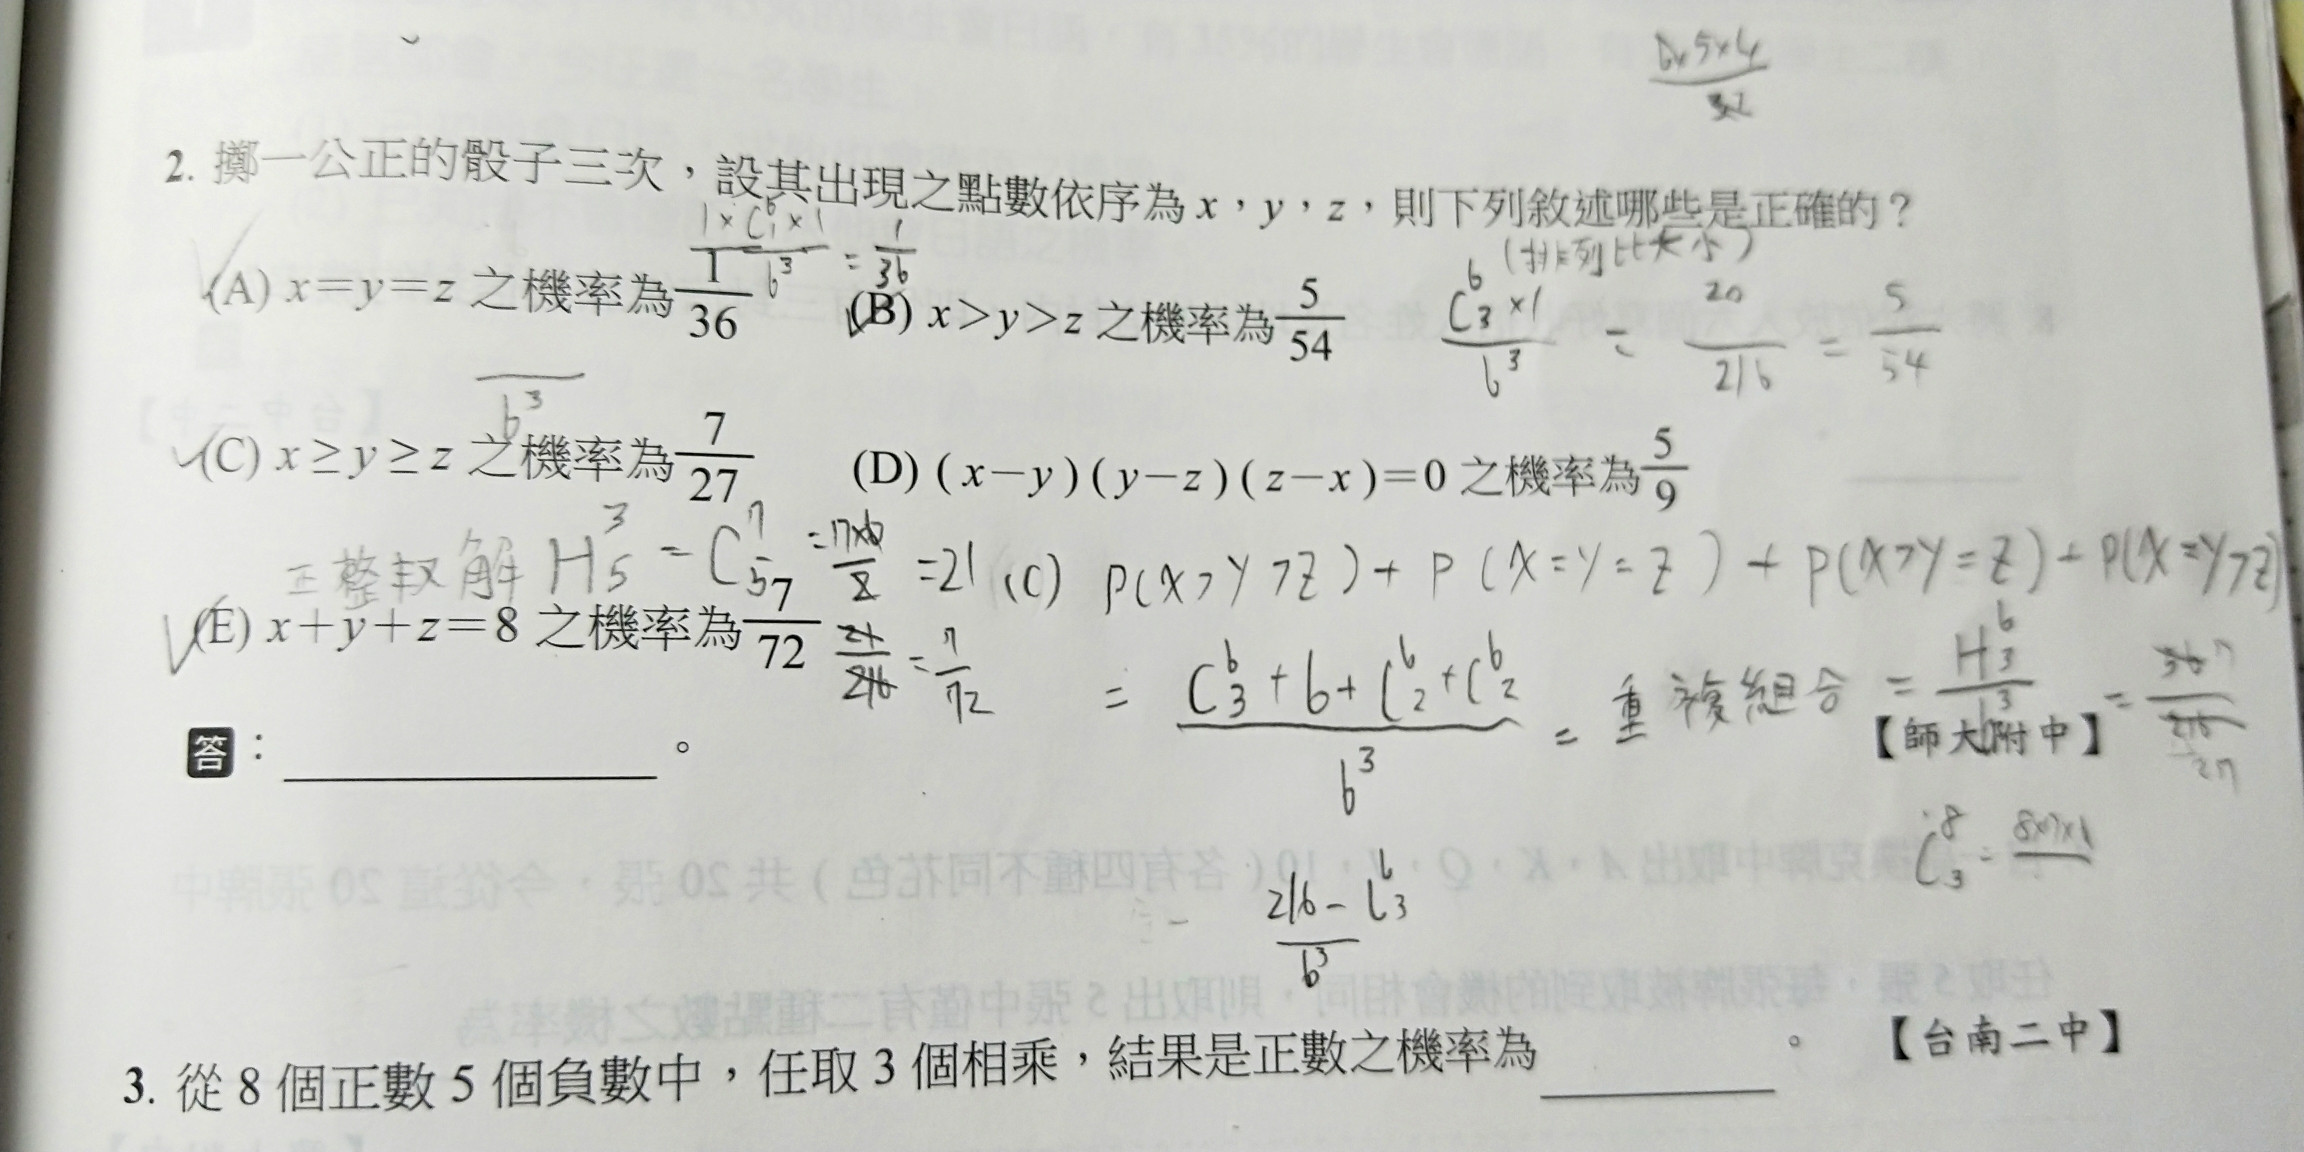 6×5×4
3×2
2. 擲一公正的骰子三次，設其出現之點數依序為 x，y，z，則下列敘述哪些是正確的？
1×C⁶₁×1 / 6³ = 1/36
(排列比大小)
(A) x=y=z 之機率為 1/36 (B) x>y>z 之機率為 5/54
C⁶₃×1 / 6³ = 20/216 = 5/54
6³
(C) x≥y≥z 之機率為 7/27 (D) (x−y)(y−z)(z−x)=0 之機率為 5/9
正整數解 H³₅ = C⁷₅ = 7×6/2 = 21
(C) P(X>Y>Z) + P(X=Y=Z) + P(X>Y=Z) + P(X=Y>Z)
(E) x+y+z=8 之機率為 7/72
21/216 = 7/72
= C⁶₃+6+C⁶₂+C⁶₂ / 6³ = 重複組合 = H⁶₃ / 6³ = 56 7 / 216 27
答：________。 【師大附中】
C⁸₃ = 8×7×
216−C⁶₃ / 6³
3. 從 8 個正數 5 個負數中，任取 3 個相乘，結果是正數之機率為________。 【台南二中】